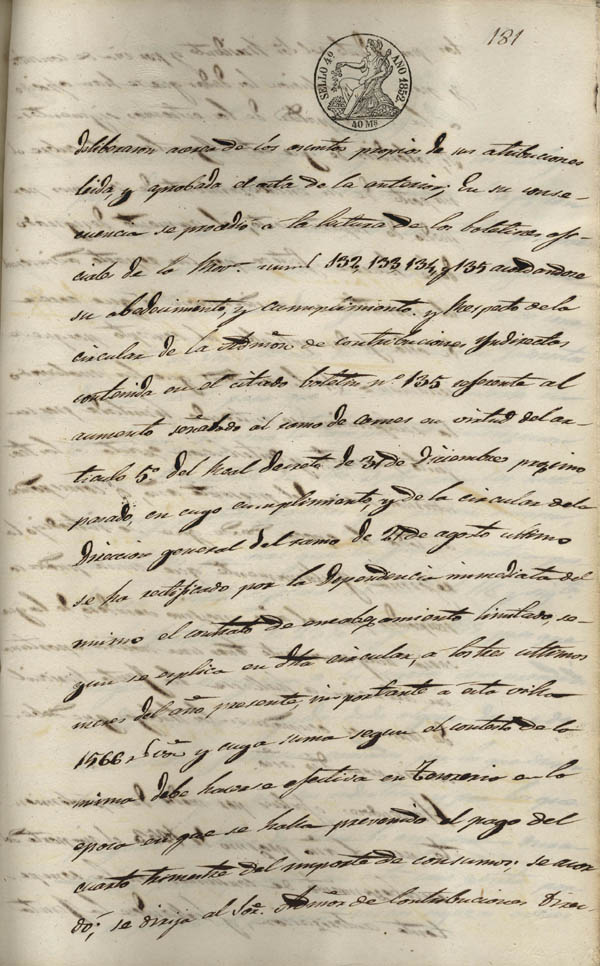 181
SELLO 4º AÑO 1852.
40 Ms
deliberason acerca de los asuntos propios de sus atribuciones
leida, y aprobada el acta de la anterior; En su conse-
cuencia se procedió a la lectura de los boletines ofi-
ciales de la Prov.ª num.s 132, 133, 134, y 135 acordandose
su obedecimiento, y cumplimiento. y Respeto de la
circular de la Admon de contribuciones Yndirectas
contenida en el citado boletin nº 135 referente al
aumento señalado al ramo de carnes en virtud del ar-
ticulo 5º del Real Decreto de 31 de Diciembre proximo
pasado, en cuyo cumplimiento, y de la circular de la
Direccion general del ramo de 27 de agosto ultimo
se ha rectificado por la Dependencia inmediata del
mismo el contrato de encabezamiento limitado se-
gun se esplica en dha circular, a los tres ultimos
meses del año presente, importante a esta villa
1566 r.s v.n y cuya suma segun el contesto de la
misma debe hacerse efectiva en Tesoreria a la
epoca en que se halla prevenido el pago del
cuarto trimestre del importe de consumos; se acor
dó; se dirija al Sor. Admor de Contribuciones Direc-